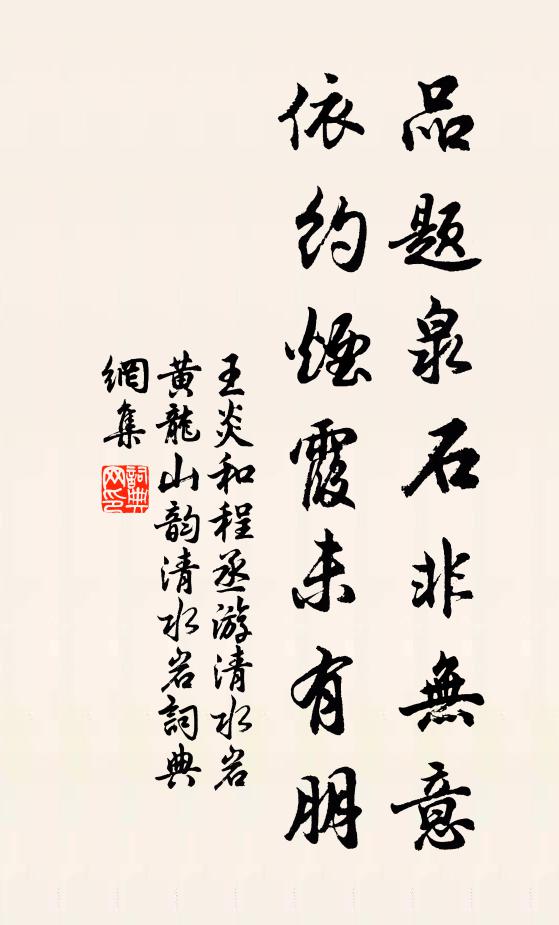 品题泉石非無意
依約煙霞未有朋
王炎和程丞游清水岩
黄龍山韵清水岩詞典
網集
詞典網印